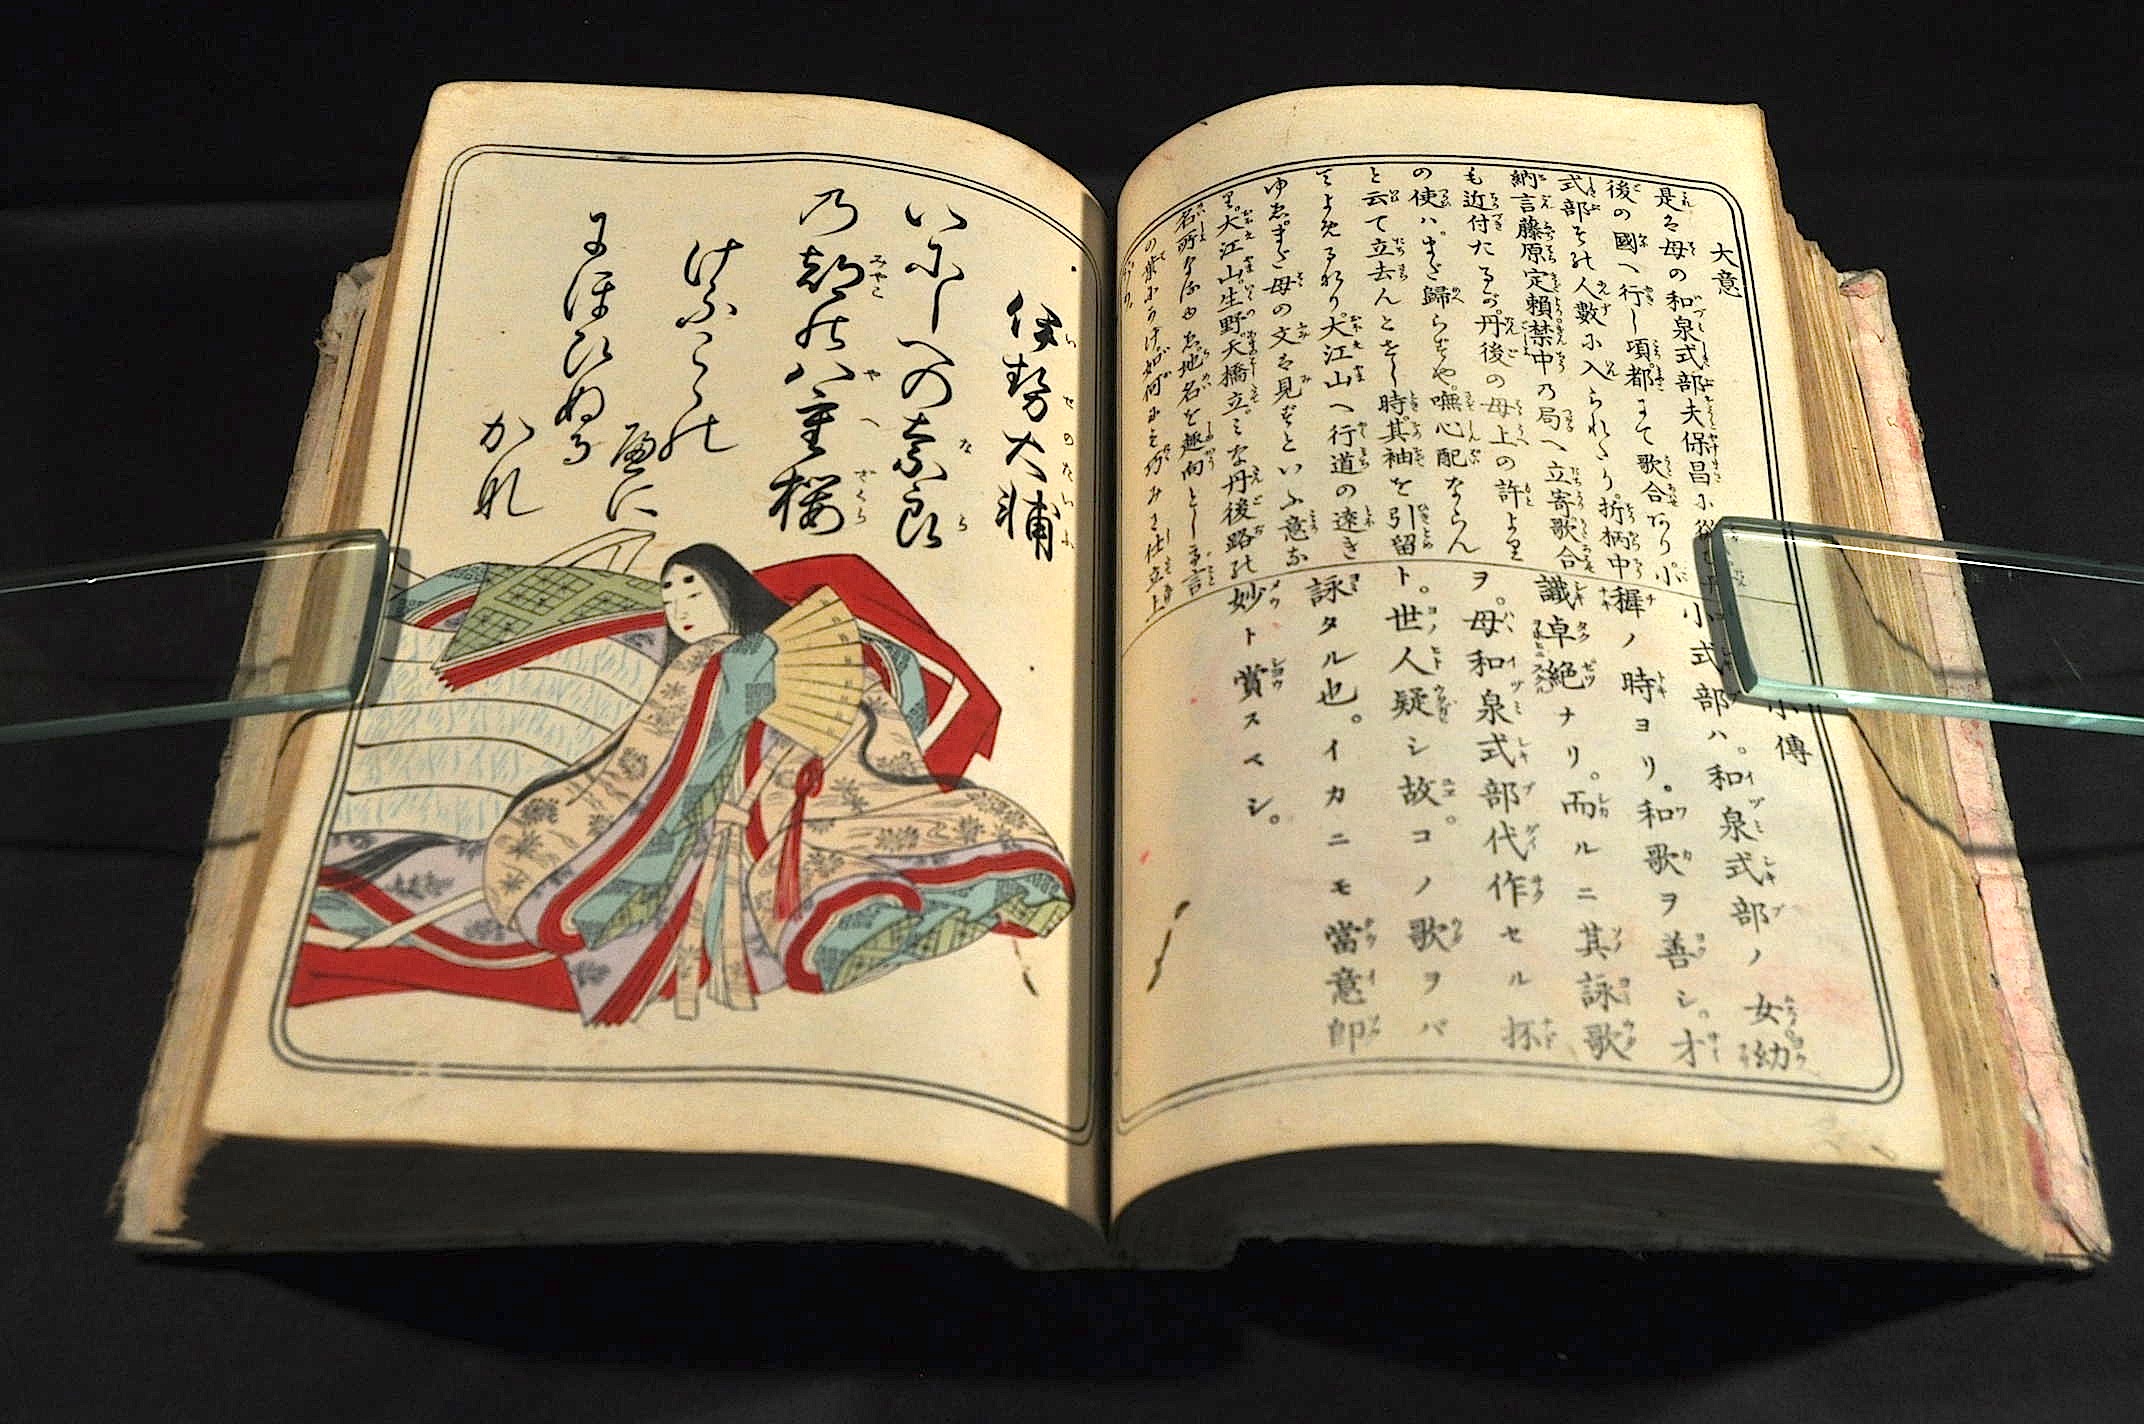 大意
是は母の和泉式部夫保昌に従ひ丹
後の國へ行し頃都にて歌合あり小
式部その人數に入られたり折柄中
納言藤原定頼禁中の局へ立寄歌合
も近付たるが丹後の母上の許より
の使ハまだ歸らずや嘸心配ならん
と云て立去んとせし時其袖を引留
てよめるなり大江山へ行道の遠き
ゆゑまだ母の文を見ずといふ意な
り大江山生野天橋立みな丹後路の
名所なるゆゑ地名を趣向とし言
の葉にかけ如何にも巧みに仕立上
たり
小傳
小式部ハ。和泉式部ノ女幼
穉ノ時ヨリ。和歌ヲ善シ。才
識卓絶ナリ。而ルニ其詠歌
ヲ。母和泉式部代作セル抔
ト。世人疑シ故。コノ歌ヲバ
詠タル也。イカニモ當意即
妙ト賞スベシ。
伊勢大輔
いにしへの奈良
乃都の八重桜
けふこゝの
重に
にほひぬる
かな